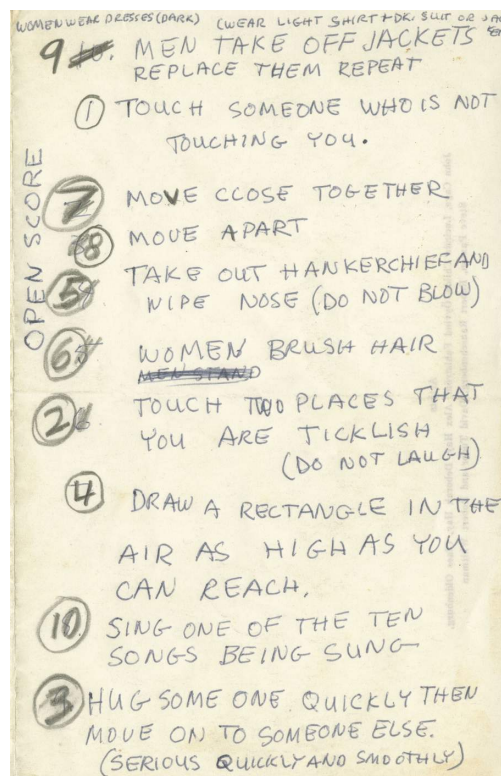 WOMEN WEAR DRESSES (DARK) (WEAR LIGHT SHIRT + DK. SUIT OR
9 MEN TAKE OFF JACKETS
REPLACE THEM REPEAT
1 TOUCH SOMEONE WHO IS NOT
TOUCHING YOU.
OPEN SCORE
7 MOVE CLOSE TOGETHER
8 MOVE APART
5 TAKE OUT HANKERCHIEF AND
WIPE NOSE (DO NOT BLOW)
6 WOMEN BRUSH HAIR
MEN STAND
2 TOUCH TWO PLACES THAT
YOU ARE TICKLISH
(DO NOT LAUGH)
4 DRAW A RECTANGLE IN THE
AIR AS HIGH AS YOU
CAN REACH.
10 SING ONE OF THE TEN
SONGS BEING SUNG
3 HUG SOME ONE QUICKLY THEN
MOVE ON TO SOMEONE ELSE.
(SERIOUS QUICKLY AND SMOOTHLY)